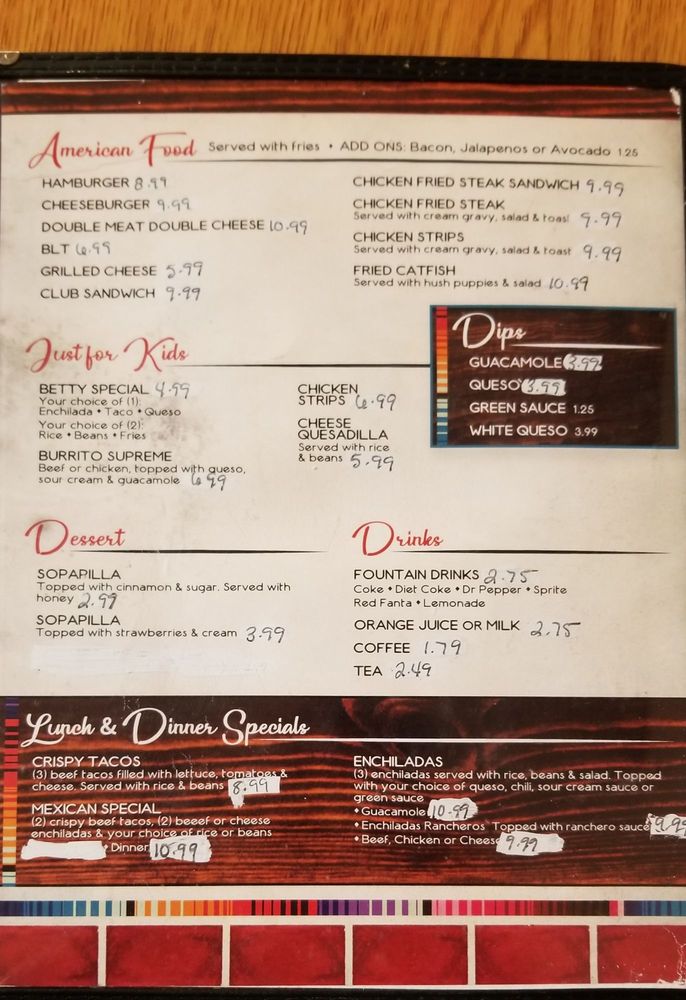 American Food Served with fries • ADD ONS: Bacon, Jalapenos or Avocado 1.25
HAMBURGER 8.99
CHEESEBURGER 9.99
DOUBLE MEAT DOUBLE CHEESE 10.99
BLT 6.99
GRILLED CHEESE 5.99
CLUB SANDWICH 9.99
CHICKEN FRIED STEAK SANDWICH 9.99
CHICKEN FRIED STEAK
Served with cream gravy, salad & toast 9.99
CHICKEN STRIPS
Served with cream gravy, salad & toast 9.99
FRIED CATFISH
Served with hush puppies & salad 10.99
Dips
GUACAMOLE 3.99
QUESO 3.99
GREEN SAUCE 1.25
WHITE QUESO 3.99
Just for Kids
BETTY SPECIAL 4.99
Your choice of (1):
Enchilada • Taco • Queso
Your choice of (2):
Rice • Beans • Fries
BURRITO SUPREME
Beef or chicken, topped with queso,
sour cream & guacamole 6.99
CHICKEN
STRIPS 6.99
CHEESE
QUESADILLA
Served with rice
& beans 5.99
Dessert
SOPAPILLA
Topped with cinnamon & sugar. Served with
honey 2.99
SOPAPILLA
Topped with strawberries & cream 3.99
Drinks
FOUNTAIN DRINKS 2.75
Coke • Diet Coke • Dr Pepper • Sprite
Red Fanta • Lemonade
ORANGE JUICE OR MILK 2.75
COFFEE 1.79
TEA 2.49
Lunch & Dinner Specials
CRISPY TACOS
(3) beef tacos filled with lettuce, tomatoes &
cheese. Served with rice & beans 8.99
MEXICAN SPECIAL
(2) crispy beef tacos, (2) beeef or cheese
enchiladas & your choice of rice or beans
• Dinner 10.99
ENCHILADAS
(3) enchiladas served with rice, beans & salad. Topped
with your choice of queso, chili, sour cream sauce or
green sauce
• Guacamole 10.99
• Enchiladas Rancheros Topped with ranchero sauce 9.99
• Beef, Chicken or Cheese 9.99